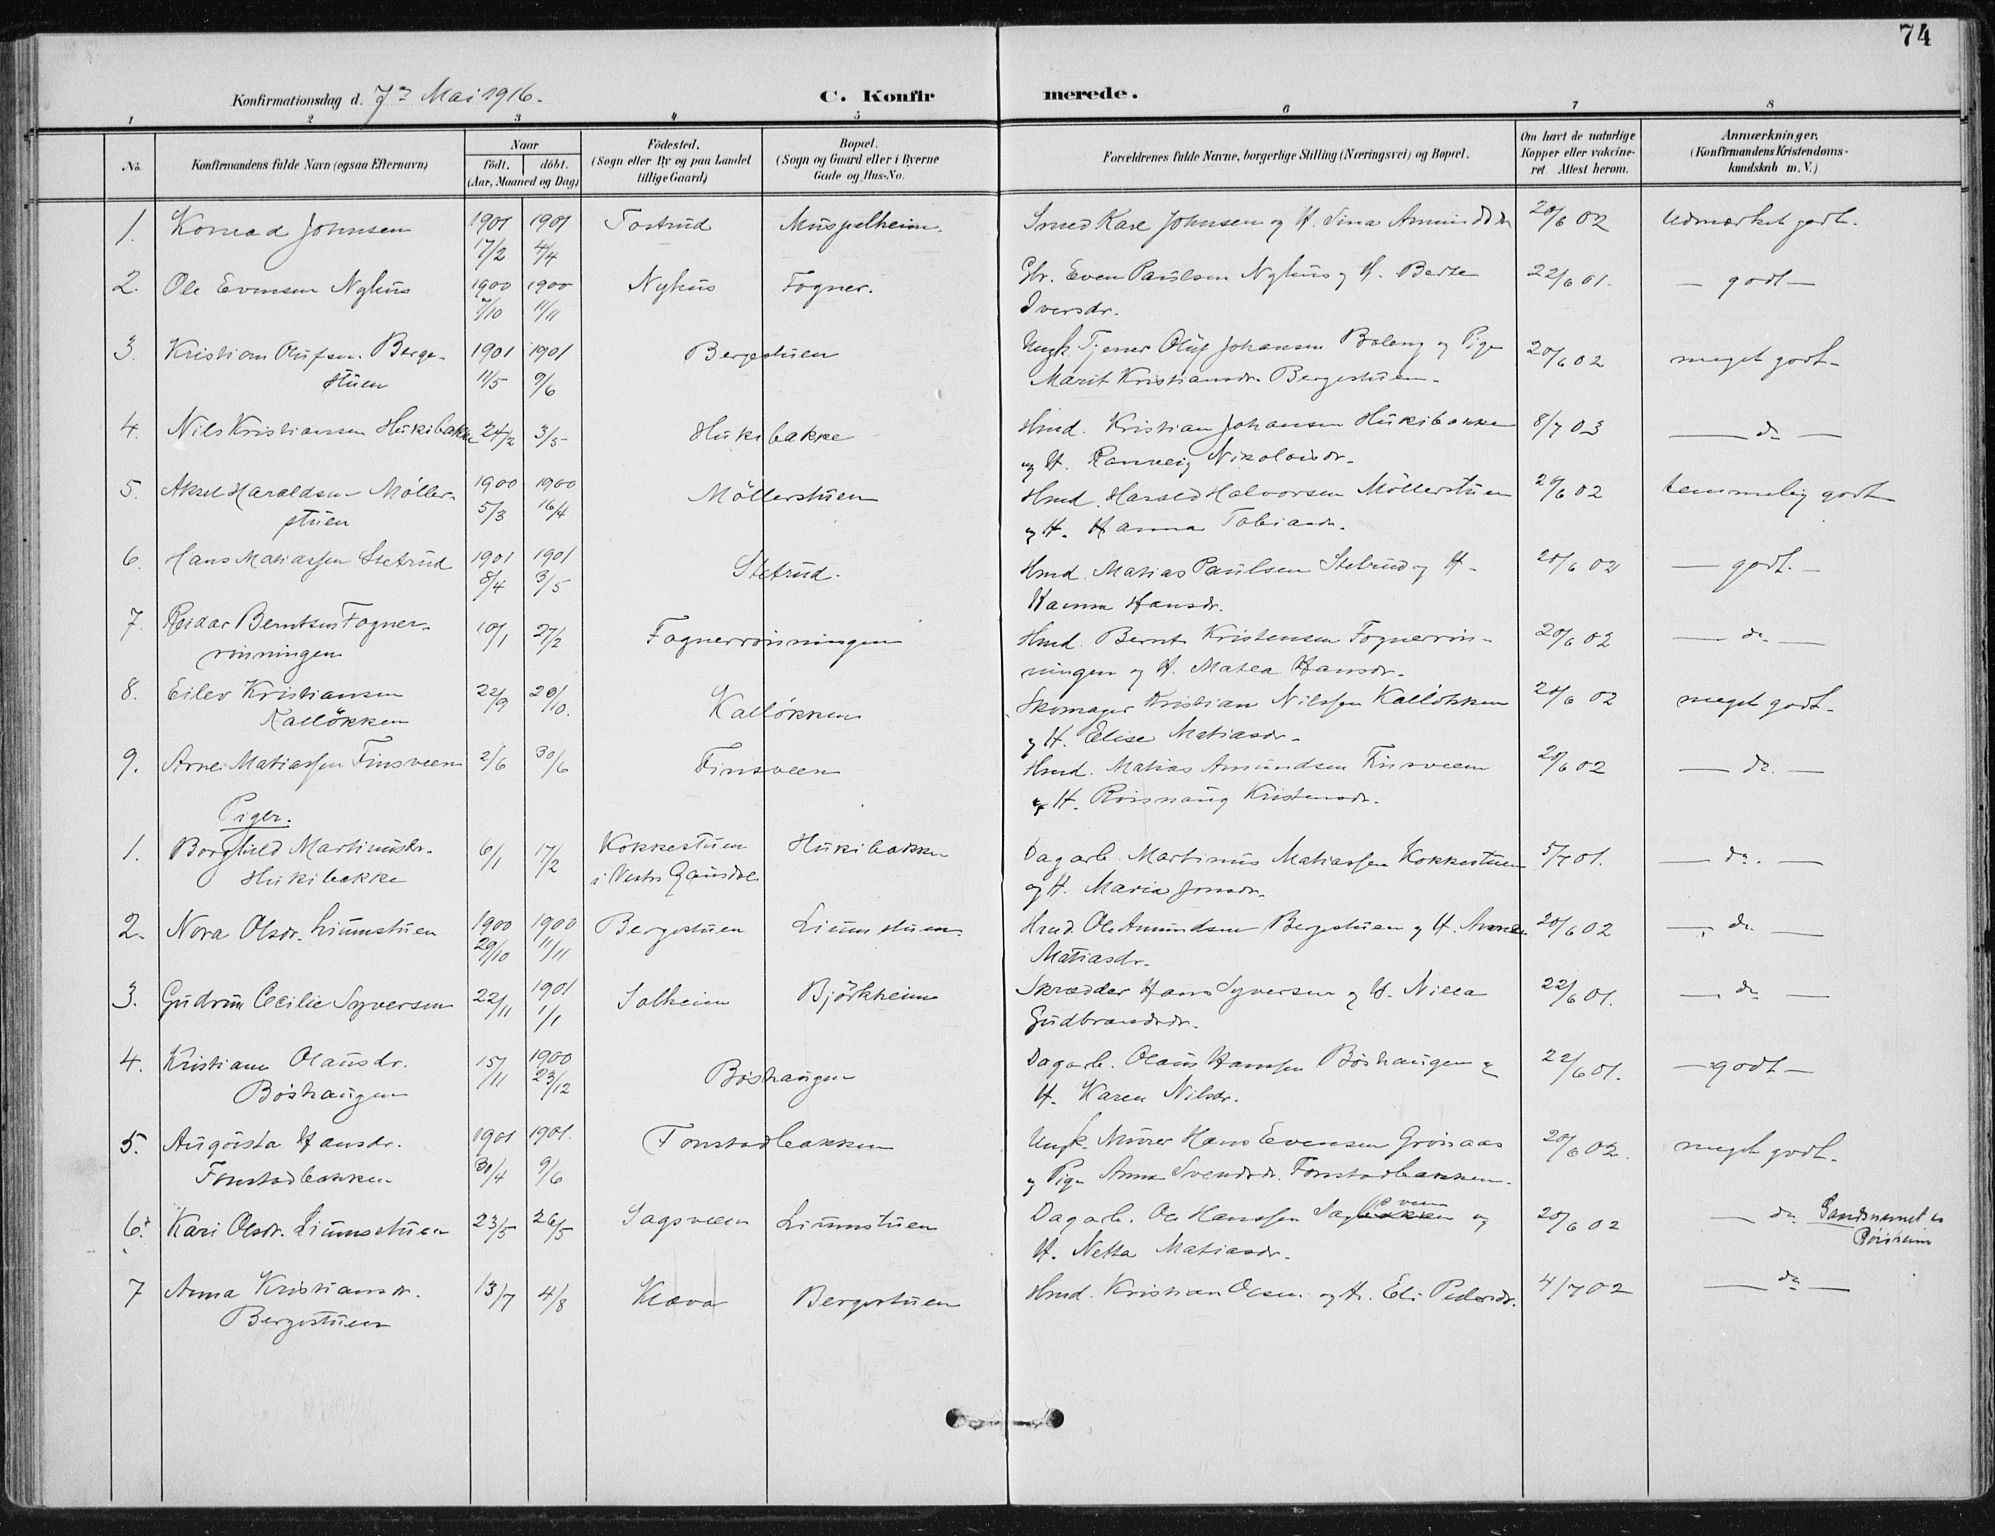 74
Konfirmationsdag d. 7de Mai 1916. C. Konfirmerede.
1 2 3 4 5 6 7 8
No. Konfirmandens fulde Navn (ogsaa Efternavn) Naar født. døbt. (Aar, Maaned og Dag) Fødested. (Sogn eller By og paa Landet tillige Gaard) Bopæl. (Sogn og Gaard eller i Byerne Gade og Hus-No. Forældrenes fulde Navne, borgerlige Stilling (Næringsvei) og Bopæl. Om havt de naturlige Kopper eller vakcineret. Attest herom. Anmærkninger. (Konfirmandens Kristendomskundskab m. V.)
1. Konrad Johnsen 1901 17/2 1901 4/4 Tostrud Muspelheim. Smed Karl Johnsen og H. Sina Amundsdr 20/6 02 Udmærket godt.
2. Ole Evensen Nyhus 1900 7/10 1900 11/11 Nyhus Fogner. Gbr. Even Paulsen Nyhus og H. Berte
Iversdr. 22/6 01. — godt —
3. Kristian Olufsen Berge- 1901 11/5 1901 9/6 Bergestuen Ungk. Tjener Oluf Johansen Boleng og Pige 20/6 02 meget godt.
stuen Marit Kristiansdr. Bergestuen.
4. Nils Kristiansen Hukibakke 24/2 3/5 Hukibakke Hmd. Kristian Johansen Hukibakke 8/7 03 — do —
og H. Ranveig Nikolaisdr.
5. Aksel Haraldsen Möller- 1900 5/3 1900 16/4 Möllerstuen Hmd. Harald Halvorsen Möllerstuen 20/6 02 temmelig godt
stuen og H. Hanna Tobiasdr.
6. Hans Matiassen Stetrud 1901 8/4 1901 3/5 Stetrud. Hmd. Matias Paulsen Stetrud og H. 20/6 02 — godt. —
Hanna Hansdr.
7. Reidar Berntsen Fogner- 10/1 27/2 Fognerrönningen Hmd. Bernt Kristensen Fognerrön- 20/6 02 — do —
rönningen ningen og H. Matea Hansdr.
8. Eilev Kristiansen 22/9 20/10. Kallökken Skomager Kristian Nilssen Kallökken 20/6 02 meget godt.
Kallökken og H. Elise Matiasdr.
9. Arne Matiassen Finsveen 2/6 30/6 Finsveen Hmd. Matias Amundsen Finsveen 20/6 02 — do. —
og H. Röisnaug Kristensdr.
Piger.
1. Borghild Martinusdr. 6/1 17/2 Kokkestuen Hukibakke Dagarb. Martinus Matiassen Kokkestuen 5/7 01. — do. —
Hukibakke i Vestre Gausdal og H. Maria Jonsdr.
2. Nora Olsdr. Liumstuen 1900 29/10 1900 11/11 Bergestuen Liumstuen. Hmd Ole Amundsen Bergestuen og H. 20/6 02 — do. —
Matiasdr.
3. Gudrun Cecilie Syversen 22/11 1901 1/1 Solheim Björkheim Skrædder Hans Syversen og H. 22/6 01. — do —
Gudbrandsdr.
4. Kristiane Olausdr. 15/11 1900 23/12 Böshaugen Dagarb. Olaus Hanssen Böshaugen og 22/6 01. — godt —
Böshaugen H. Karen Nilsdr.
5. Augusta Hansdr. 1901 30/4 1901. 9/6 Fonstadbakken Ungk. Murer Hans Evensen Grönaas 20/6 02. meget godt.
Fonstadbakken og Pige Anna Svendsdr. Fonstadbakken.
6. Kari Olsdr. Liumstuen 23/5 26/5 Sagsveen Liumstuen Dagarb. Ole Hanssen Sagbakken sveen og 20/6 02 — do
H. Netta Matiasdr.
7 Anna Kristiansdr. 13/7 4/8 Klæva Bergestuen Hmd. Kristian Olsen og H. Eli Pedersdr. 4/7 02 — do —
Bergestuen